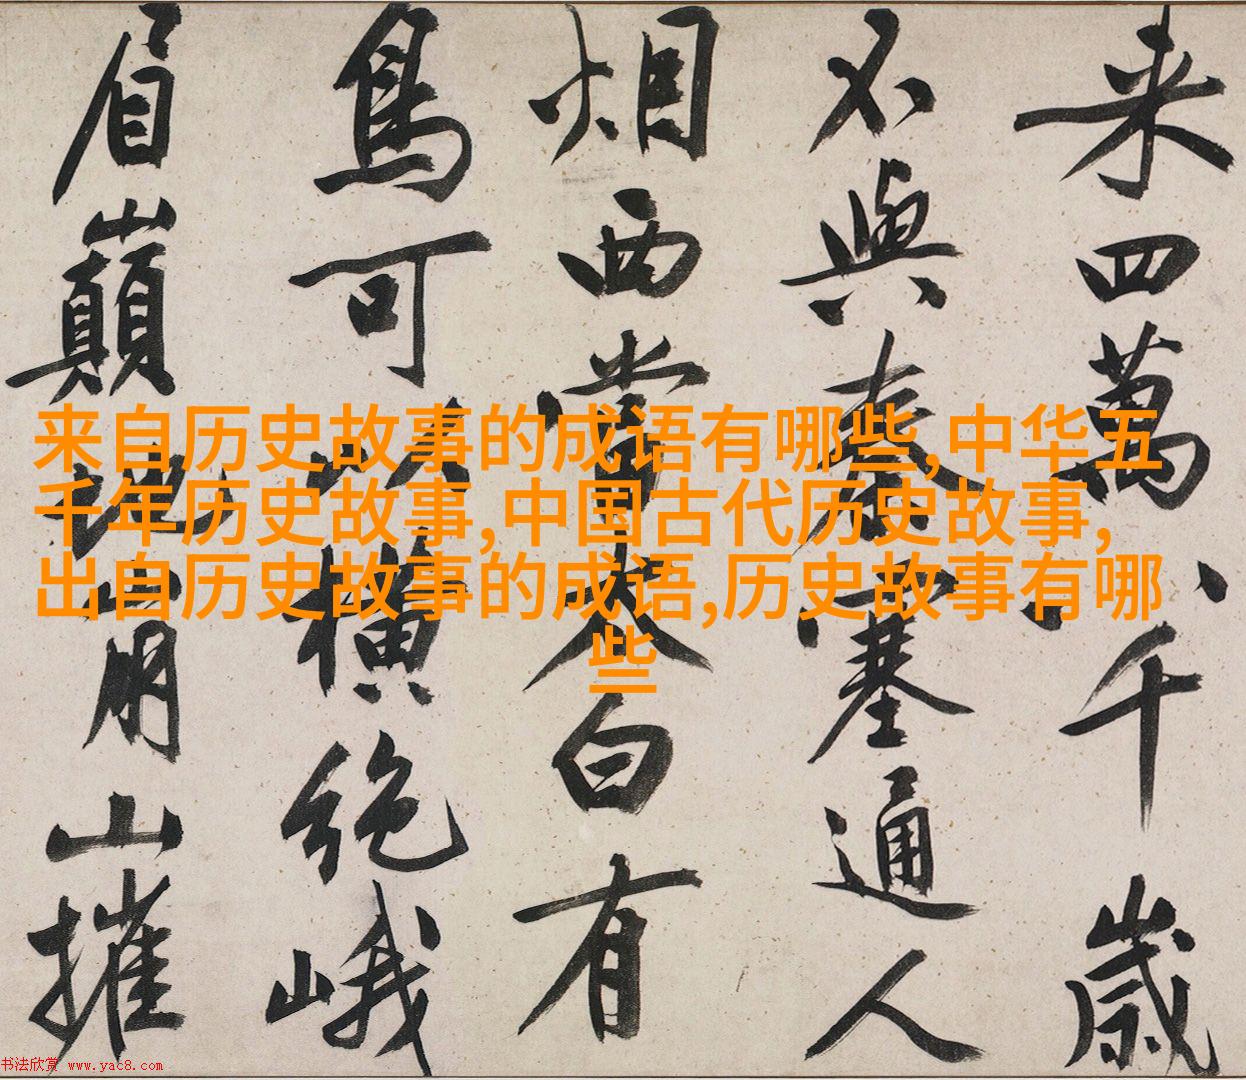 来四萬八千歲
不與秦塞通人
烟西當太白有
鳥可以橫絕峨
眉巔地崩山摧
来自历史故事的成语有哪些,中华五
千年历史故事,中国古代历史故事,
出自历史故事的成语,历史故事有哪
些
书法欣赏 www.yac8.com